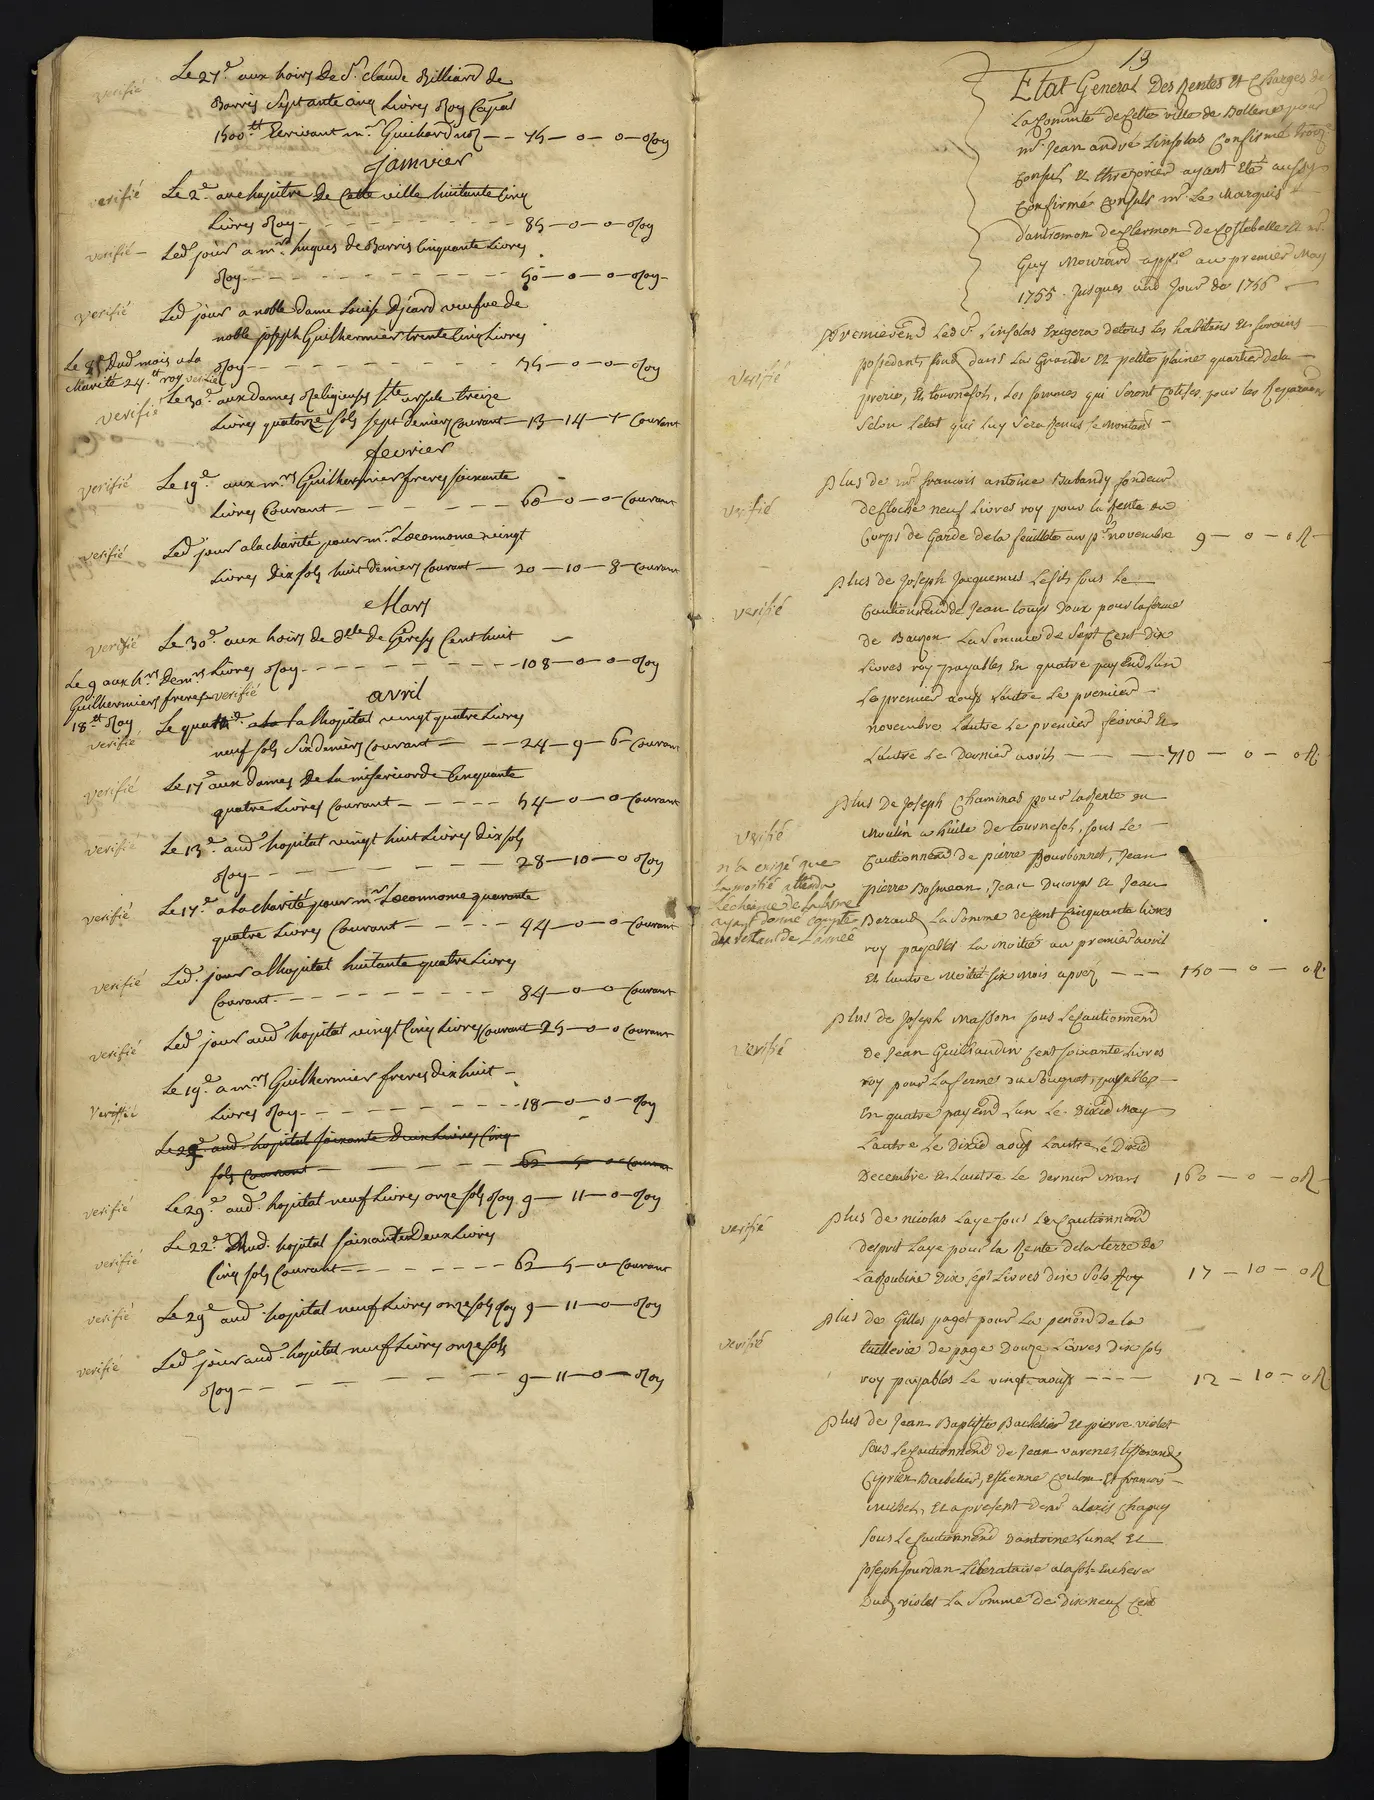 verifié
Le 27e. aux hoirs de Sr. claude Billiard de
Barris Septante cinq Livres Roy Capal
1500 tt Ecrivant mr. Guichard nore — — 75 — 0 — 0 — Roy
janvier
verifié
Le 2e. au chapitre De Cette ville huitante Cinq
Livres Roy — — — 85 — 0 — 0 — Roy
verifié —
Led jour a mre. hugues de Barris Cinquante Livres
Roy — — — 50 — 0 — 0 — Roy —
verifié
Led jour a noble dame Louise veufve de
noble joseph Guilhermier trente Cinq Livres
Roy — — — 35 — 0 — 0 — Roy
Le Dud mois a la
charité 24 tt roy verifié
verifié
Le 30e. aux dames Religieuses Ste ursule treize
Livres quatorze sols sept deniers Courant — 13 — 14 — 7 — Courant
fevrier
verifié
Le 19e. aux mrs Guilhermier freres soixante
Livres Courant — — — 60 — 0 — 0 — Courant
verifié
Led jour a la charité pour mr. L'oeconnome vingt
Livres Dix sols huit deniers Courant — 20 — 10 — 8 — Courant
Mars
verifié
Le 30e. aux hoirs de dlle de Geressy Cent huit —
Livres Roy — — — 108 — 0 — 0 — Roy
Le 9 aux hrs De mrs
Guilhermiers freres verifié
18 tt Roy
avril
verifié
Le a la l'alhopital vingt quatre Livres
neuf sols Six deniers Courant — — — 24 — 9 — 6 — Courant
verifié
Le 17e aux dames De La misericorde Cinquante
quatre Livres Courant — — — 54 — 0 — 0 — Courant
verifié
Le 13e. aud hopital vingt huit Livres dix sols
Roy — — — 28 — 10 — 0 Roy
verifié
Le 17e. a la charité pour mr. L'oeconnome quarante
quatre Livres Courant — — — 44 — 0 — 0 — Courant
verifié
Led. jour a l'hopital huitante quatre Livres
Courant — — — 84 — 0 — 0 — Courant
verifié
Led jour aud hopital vingt Cinq Livres Courant 25 — 0 — 0 Courant
verifié
Le 19e a mrs Guilhermier freres dix huit —
Livres Roy — — — 18 — 0 — 0 — Roy
Le 29e aud hopital soixante Deux Livres Cinq
sols Courant — — — 62 — 5 — 0 — Courant
verifié
Le 29e. aud. hopital neuf Livres onze sols Roy 9 — 11 — 0 — Roy
verifié
Le 22e. aud. hopital soixante Deux Livres
Cinq sols Courant — — — 62 — 5 — 0 — Courant
verifié
Le 29 aud hopital neuf Livres onze sols Roy 9 — 11 — 0 — Roy
verifié
Led jour aud. hopital neuf Livres onze sols
Roy — — — 9 — 11 — 0 — Roy
13
Etat General Des Rentes Et Charges de
La Commté de Cette ville de Bollene pour
mr. Jean andré Sinsolas Confirmé
Consul Et thresorier ayant Eté aussy
Confirmé Consuls mr. Le Marquis
d'antramon de Clermon de Costebelle Et
Guy Mouriard appel au premier May
1755 Jusques aud Jour de 1756 —
Premierend Led Sr. Sinsolas Exigera de tous les habitens Et forains —
verifié
possedant fond dans La Grande Et petite plaine quartier de la —
prerie, Et tournefol, Les sommes qui seront Cotisés pour les Reparaons
selon L'etat qui luy sera remis se montant —
verifié
Plus de mr francois antoine Rabandy fondeur
de Cloche neuf Livres roy pour la Rente du
Corps de Garde de la feuillete au pr. novembre 9 — 0 — 0 R —
verifié
Plus de Joseph Jacquemus Le fils sous Le —
Cautionnend de Jean Louis Doux pour la ferme
de Bauzon La Somme de Sept Cent Dix
Livres roy payables En quatre payend L'un
Le premier aoust L'autre Le premier —
novembre L'autre Le premier fevrier Et
L'autre Le Dernier avril — — — 710 — 0 — 0 R.
verifié
Plus De Joseph Chaminas pour la Rente du
Moulin a huile de tournefol, sous Le —
Cautionnend de pierre Bourbonnet, Jean
pierre Bosmean, Jean Ducorps Et Jean
Beraud La Somme de Cent Cinquante livres
roy payables La Moitié au premier avril
Et L'autre Moitié Six Mois aprés — — — 150 — 0 — 0 R.
n'a exigé que
la moitié attendu
ayant donné compte
du restant de L'année
verifié
Plus de Joseph Masson sous Le Cautionnend
De Jean Guilhaudin Cent soixante Livres
roy pour La ferme du payables —
En quatre payend L'un Le Dixie May
L'autre Le Dixie aoust L'autre Le Dixie
Decembre Et L'autre Le dernier Mars 160 — 0 — 0 R —
verifié
Plus de nicolas Laye sous Le Cautionnend
d'esprit Laye pour la Rente de la terre de
Laroubine Dix sept Livres dix Sols Roy 17 — 10 — 0 R
verifié
Plus de Gilles paget pour La pension de la
tuillerie de page Douze Livres Dix sols
roy payables Le vingt aoust — — — 12 — 10 — 0 R
Plus de Jean Baptiste Bachelier Et pierre violet
sous Le Cautionnend de Jean varenes tisserand
Ciprien Bachelier, Estienne Coulon Et francois —
michel, Et a present de mr alexis Chapuy
sous Le Cautionnend D'antoine Lunel Et
Joseph Jourdan Liberataire a la fole Enchere
Dud violet La Somme de Dix neuf Cent